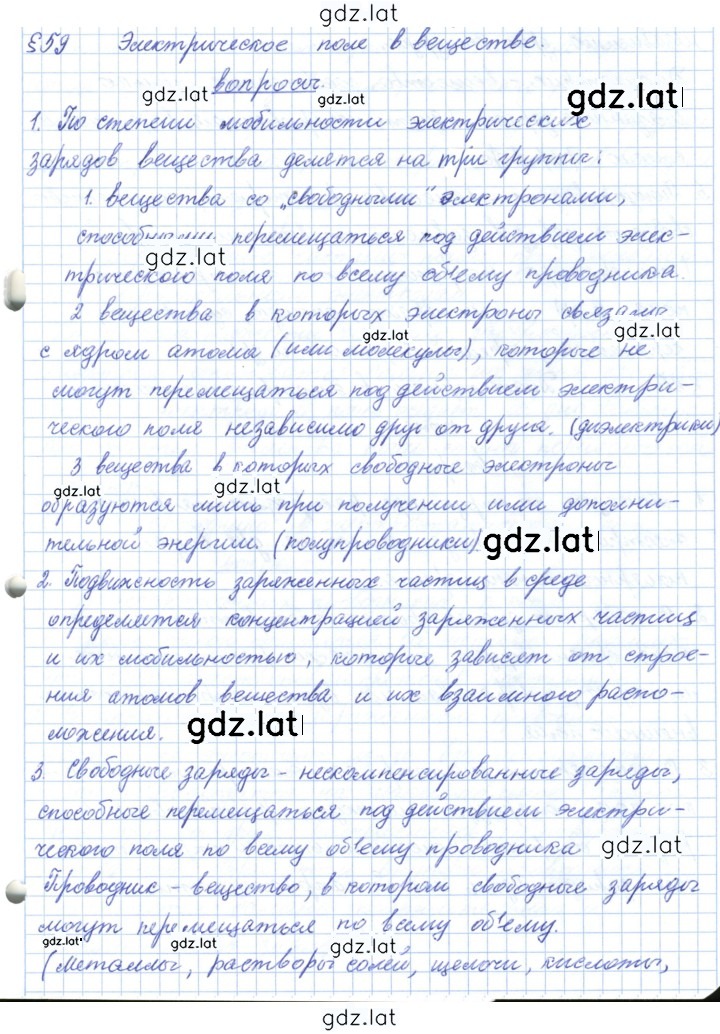 gdz.lat
§59 Электрическое поле в веществе.
вопросы.
gdz.lat gdz.lat gdz.lat
1. По степени мобильности электрических
зарядов вещества делятся на три группы:
1. вещества со „свободными" электронами,
способными перемещаться под действием элек-
gdz.lat
трического поля по всему объёму проводника.
2 вещества в которых электроны связаны
gdz.lat gdz.lat
с ядром атома (или молекулы), которые не
могут перемещаться под действием электри-
ческого поля независимо друг от друга. (диэлектрики)
3 вещества в которых свободные электроны
gdz.lat gdz.lat
образуются лишь при получении ими дополни-
тельной энергии. (полупроводники)
gdz.lat
2. Подвижность заряженных частиц в среде
определяется концентрацией заряженных частиц
и их мобильностью, которые зависят от строе-
ния атомов вещества и их взаимного распо-
ложения.
gdz.lat
3. Свободные заряды - нескомпенсированные заряды,
способные перемещаться под действием электри-
ческого поля по всему объёму проводника
gdz.lat
Проводник - вещество, в котором свободные заряды
могут перемещаться по всему объёму.
gdz.lat gdz.lat gdz.lat
(металлы, растворы солей, щелочи, кислоты,
gdz.lat